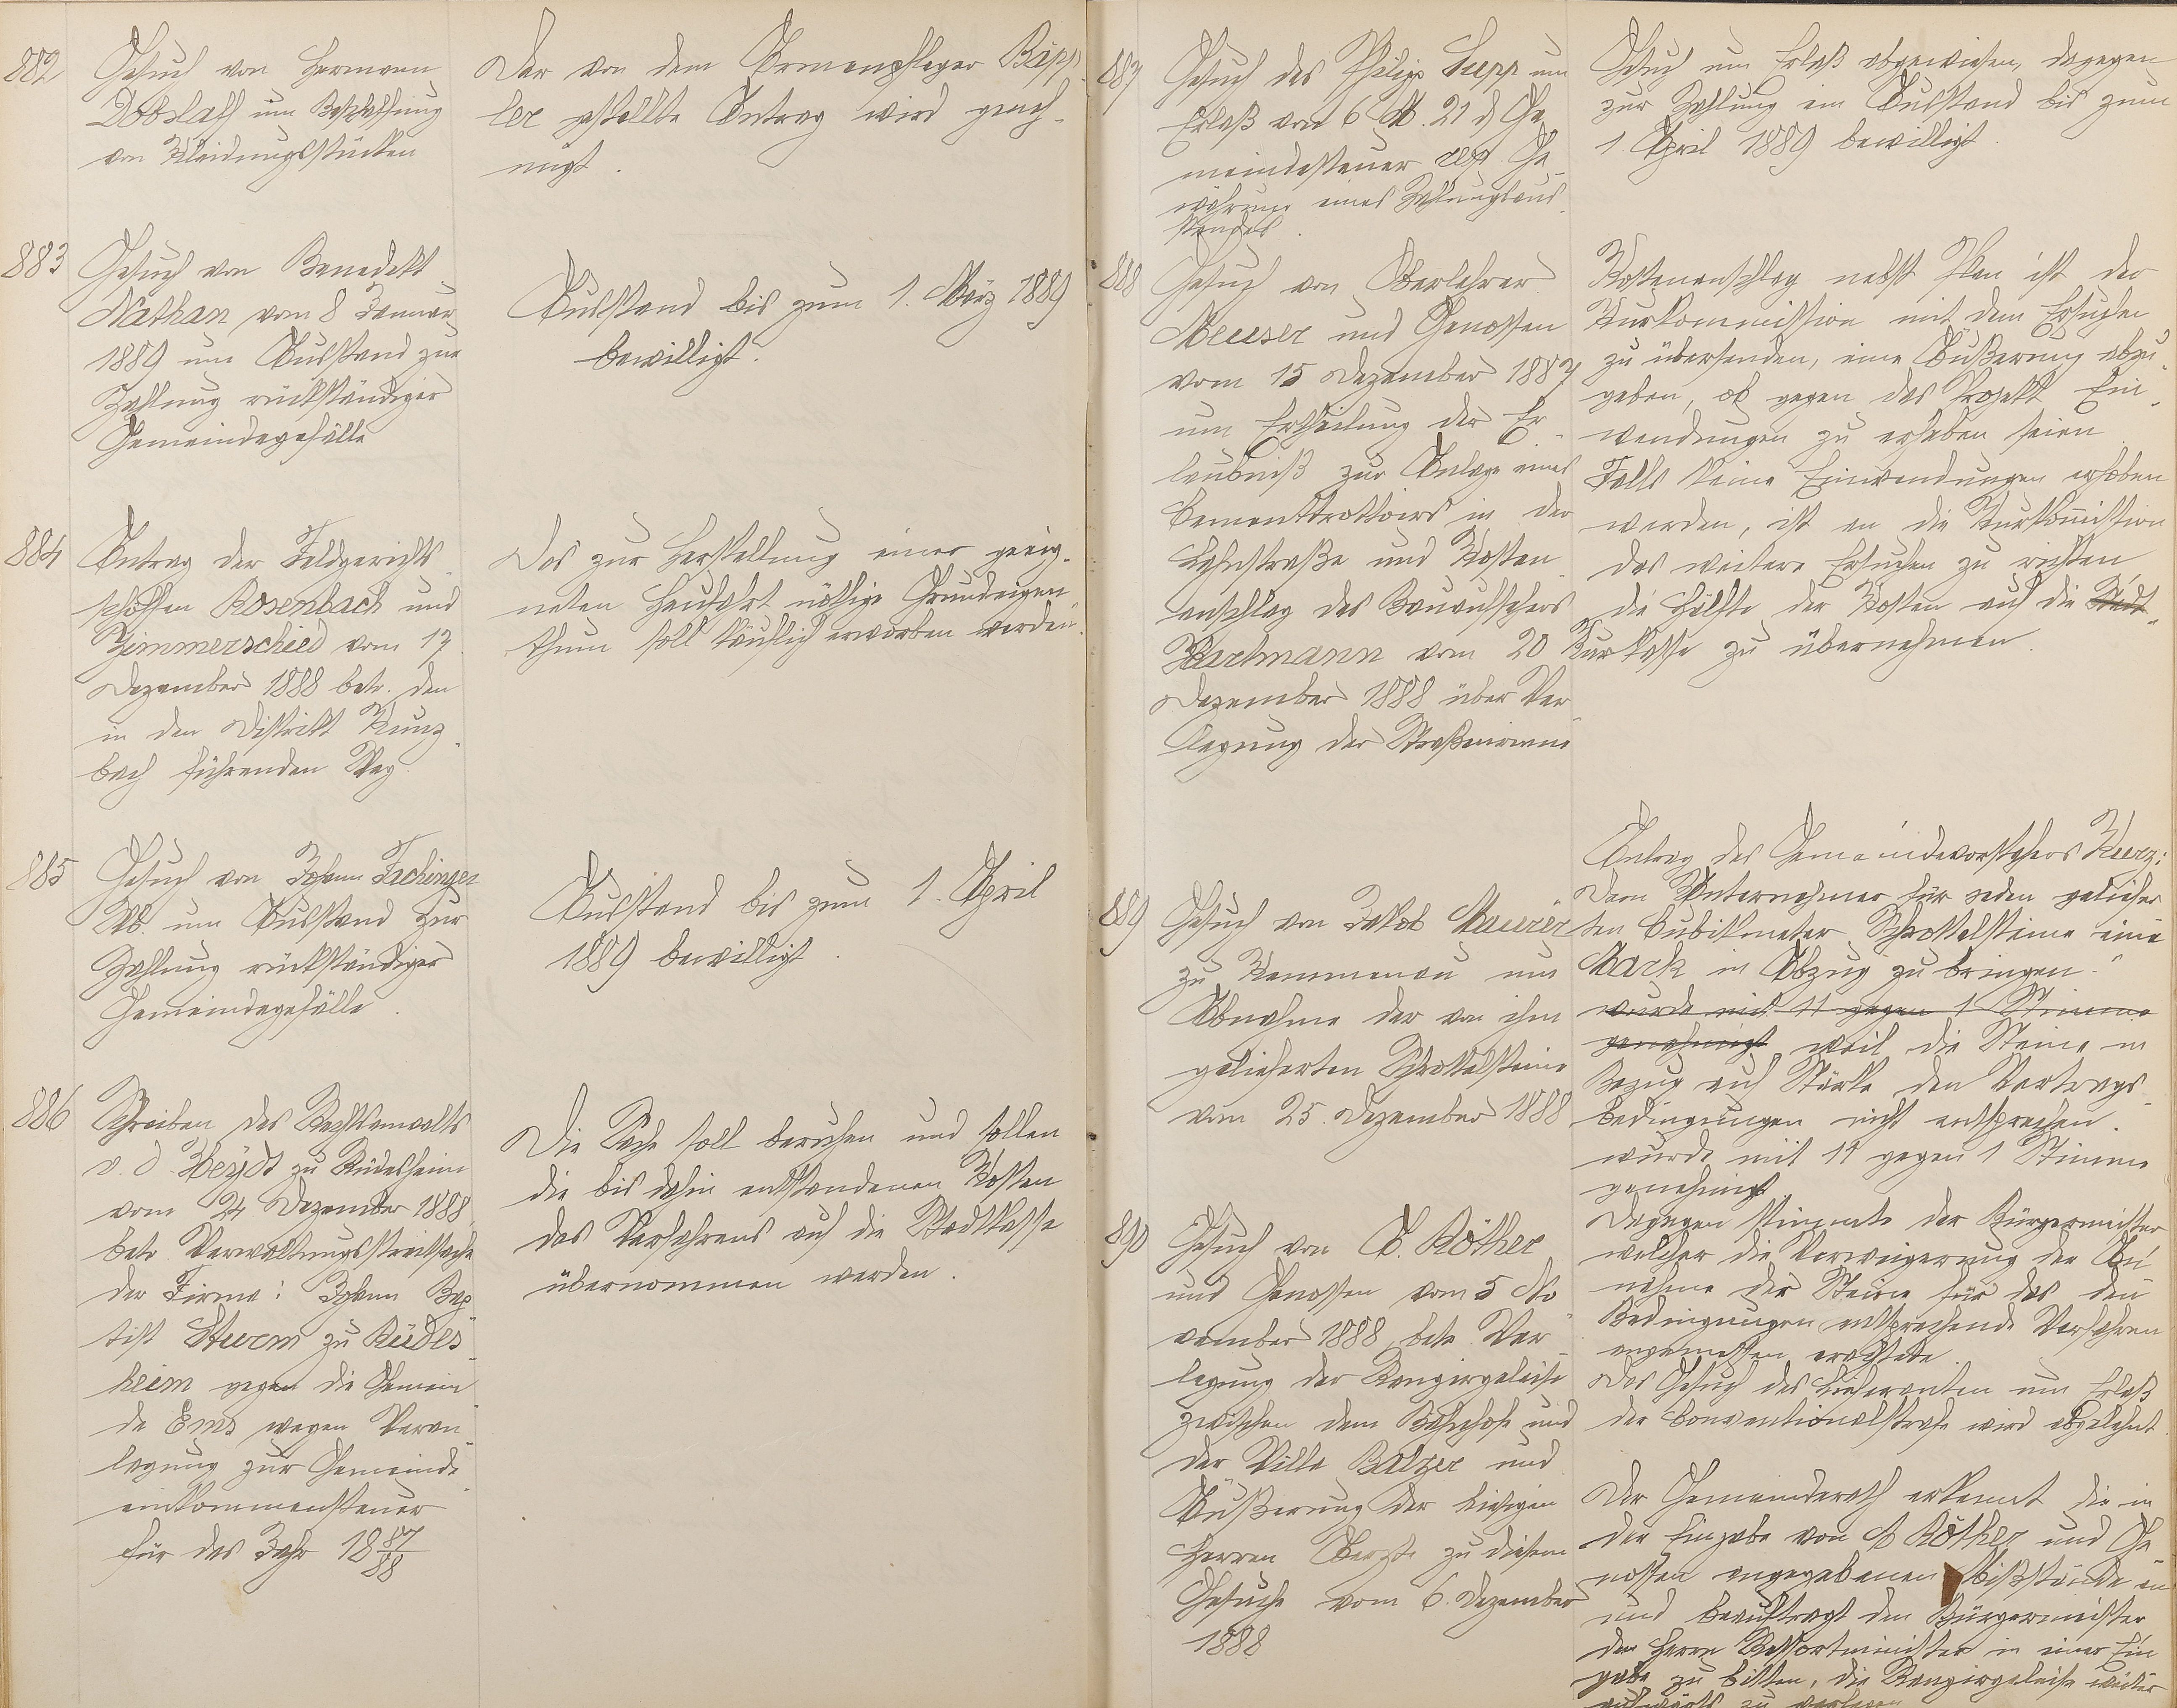 882
Gesuch von Hermann
Dobslaff um Beschaffung
von Kleidungsstücken
Der von dem Armenpfleger Bäpp-
ler gestellte Antrag wird geneh-
migt.
883
Gesuch von Benedikt
Nathan vom 8 Januar
1889 um Ausstand zur
Zahlung rückständiger
Gemeindegefälle
Ausstand bis zum 1. März 1889
bewilligt.
884
Antrag der Feldgerichts-
schöffen Rosenbach und
Zimmerschied vom 17
Dezember 1888 betr. den
in den Distrikt Kunz-
bach führenden Weg.
Das zur Herstellung einer geeig-
neten nöthige Grundeigen-
thum soll käuflich erworben werden.
885
Gesuch von Johann Fachinger
Wb. um Ausstand zur
Zahlung rückständiger
Gemeindegefälle.
Ausstand bis zum 1. April
1889 bewilligt.
886
Schreiben des Rechtsanwalts
v. d. Heydt zu Rüdesheim
vom 24 Dezember 1888
betr. Verwaltungsstreitsache
der Firma: Johann Bap-
tist Sturm zu Rüdes-
heim gegen die Gemein-
de Ems wegen Veran-
legung zur Gemeinde-
einkommensteuer
für das Jahr 1887/88
Die Sache soll beruhen und sollen
die bis dahin entstandenen Kosten
des Verfahrens auf die Stadtkasse
übernommen werden.
887
Gesuch des Philipp Supp um
Erlaß von 6 M. 21 d Ge-
meindesteuer resp. Ge-
währung eines Zahlungsaus-
standes.
Gesuch um Erlaß abgewiesen, dagegen
zur Zahlung ein Ausstand bis zum
1. April 1889 bewilligt.
888
Gesuch von Oberlehrer
Meuser und Genossen
vom 15 Dezember 1887
um Ertheilung der Er-
laubniß zur Anlage eines
Cementtrottoirs in der
Lahnstraße und Kosten-
anschlag des Bauaufsehers
Hartmann vom 20
Dezember 1888 über Ver-
legung der Straßenrinne
Kostenanschlag nebst Plan ist der
Kurkommission mit dem Ersuchen
zu übersenden, eine Äußerung abzu-
geben, ob gegen das Projekt Ein-
wendungen zu erheben seien.
Falls keine Einwendungen erhoben
werden, ist an die Kurkommission
das weitere Ersuchen zu richten
die Hälfte der Kosten auf die Stadt-
Kurkasse zu übernehmen.
889
Gesuch von Jakob Maurer
zu Kemmenau um
Abnahme der von ihm
gelieferten Schrottelsteine
vom 25. Dezember 1888
Antrag des Gemeindevorstehers Kurz:
Dem Unternehmer für jeden geliefer-
ten Cubikmeter Schrottelsteine eine
Mark in Abzug zu bringen."
wurde mit 11 gegen 1 Stimme
genehmigt weil die Steine in
Bezug auf Stärke den Vertrags-
bedingungen nicht entsprechen.
wurde mit 11 gegen 1 Stimme
genehmigt
Dagegen stimmte der Bürgermeister
welcher die Verweigerung der An-
nahme der Steine für das den
Bedingungen entsprechende Verfahren
angemessen erachtete.
Das Gesuch des Lieferanten um Erlaß
der Conventionalstrafe wird abgelehnt.
890
Gesuch von A. Röther
und Genossen vom 5 No-
vember 1888 betr. Ver-
legung der Rangirgeleise
zwischen dem Bahnhofe und
der Villa Balzer und
Äußerung der hiesigen
Herren Aerzte zu diesem
Gesuche vom 6. Dezember
1888
Der Gemeinderath erkennt die in
der Eingabe von A Röther und Ge-
nossen angegebenen Mißstände an
und beauftragt den Bürgermeister
den Herrn Ressortminister in einer Ein-
gabe zu bitten, die Rangirgeleise weiter
aufwärts zu verlegen